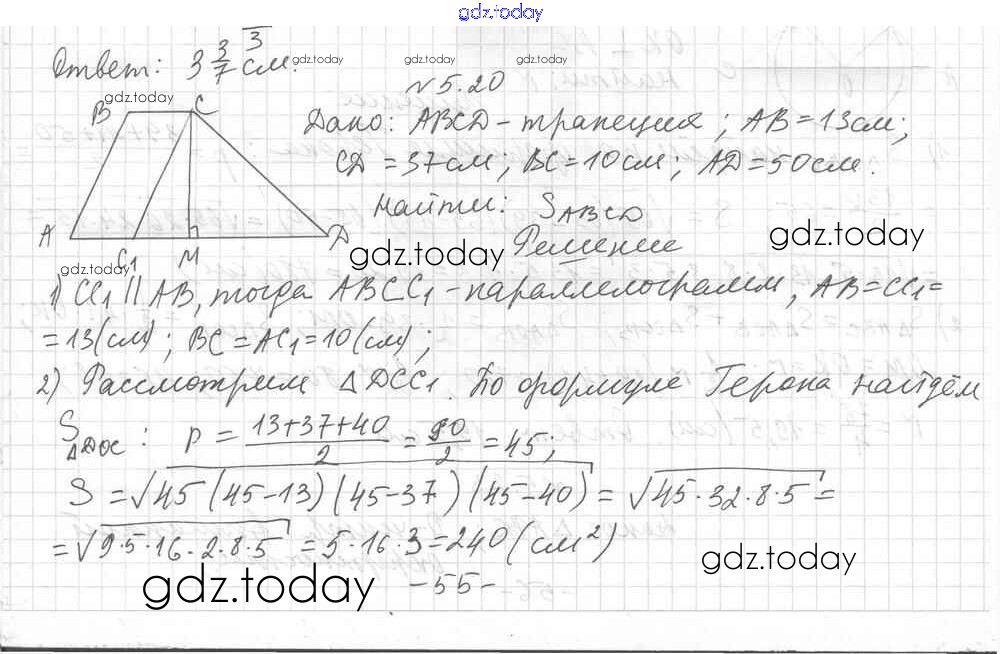 gdz.today
Ответ: 3 3/7 см. gdz.today gdz.today
3
№5.20
gdz.today
B C Дано: ABCD – трапеция; AB = 13см;
CD = 37см; BC = 10см; AD = 50см.
Найти: S ABCD
A C1 M D Решение gdz.today
gdz.today gdz.today
1) CC1 || AB, тогда ABCC1 – параллелограмм, AB = CC1 =
= 13(см); BC = AC1 = 10(см);
2) Рассмотрим △DCC1. По формуле Герона найдём
S △DOC : p = (13+37+40)/2 = 90/2 = 45;
S = √45(45-13)(45-37)(45-40) = √45·32·8·5 =
= √9·5·16·2·8·5 = 5·16·3 = 240(см²)
gdz.today gdz.today
-55-